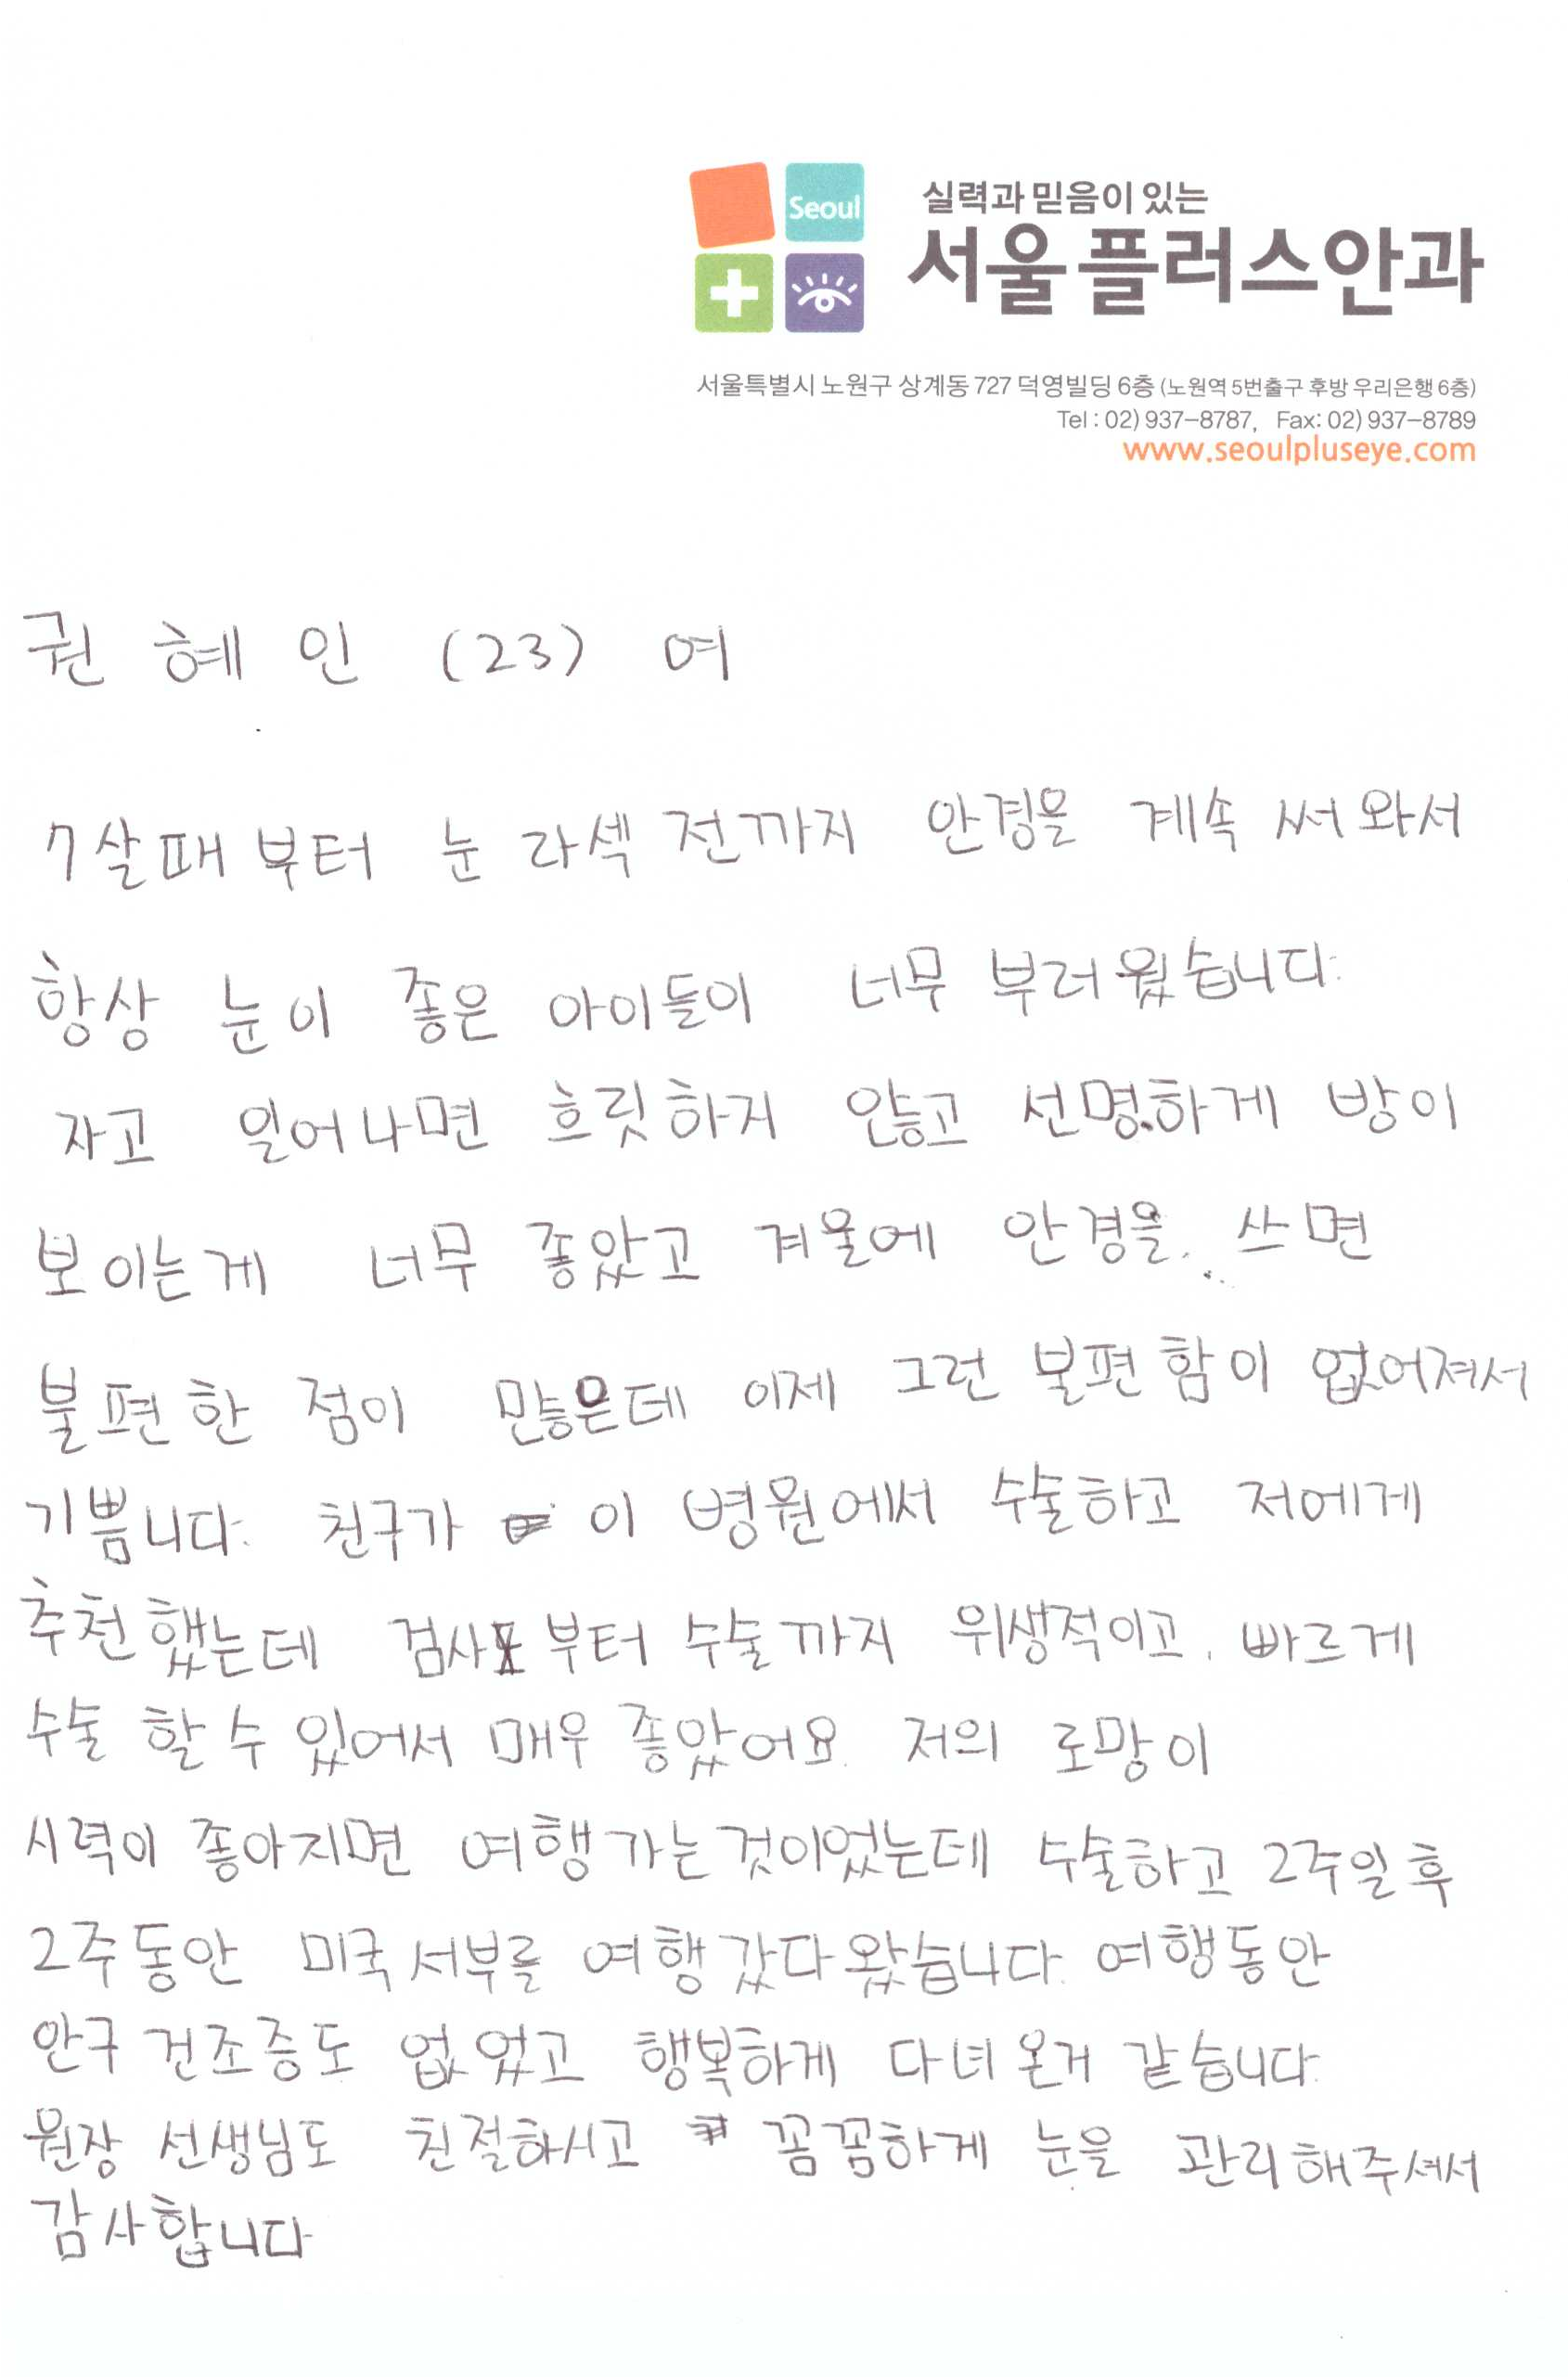 Seoul
실력과 믿음이 있는
서울플러스안과
서울특별시 노원구 상계동 727 덕영빌딩 6층 (노원역 5번출구 후방 우리은행 6층)
Tel : 02) 937-8787, Fax: 02) 937-8789
www.seoulpluseye.com
권혜인 (23) 여
7살때부터 눈 라섹 전까지 안경을 계속 써와서
항상 눈이 좋은 아이들이 너무 부러웠습니다.
자고 일어나면 흐릿하지 않고 선명하게 방이
보이는게 너무 좋았고 겨울에 안경을 쓰면
불편한 점이 많은데 이제 그런 불편함이 없어져서
기쁩니다. 친구가 이 병원에서 수술하고 저에게
추천했는데 검사부터 수술까지 위생적이고, 빠르게
수술 할 수 있어서 매우 좋았어요. 저의 로망이
시력이 좋아지면 여행가는것이었는데 수술하고 2주일후
2주동안 미국서부를 여행갔다왔습니다. 여행동안
안구건조증도 없었고 행복하게 다녀온거 같습니다.
원장 선생님도 친절하시고 꼼꼼하게 눈을 관리해주셔서
감사합니다